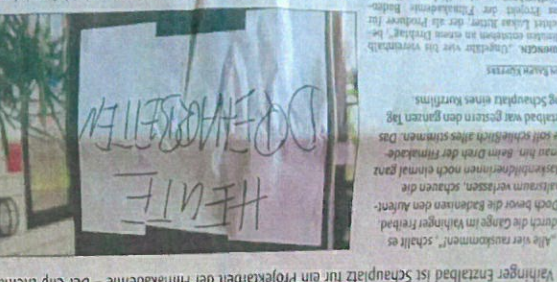 Vaihinger Enztalbad ist Schauplatz für ein Projektarbeit der Filmakademie – Der Clip
„Alle vier rauskommen!“, schallt es
durch die Gänge im Vaihinger Freibad
Doch bevor die Badenden den Aufent-
haltsraum verlassen, schauen die
Maskenbildnerinnen noch einmal ganz
genau hin. Beim Dreh der Filmakade-
soll schließlich alles stimmen. Das
Enztalbad war gestern den ganzen Tag
Schauplatz eines Kurzfilms.
VON RAHEL KÜPFERS
„Ungefähr vier bis viereinhalb
Minuten entstehen an einem Drehtag“, be-
richtet Lukas Ritter, der als Producer für
das Projekt der Filmakademie Baden-
HEUTE
DREHARBEITEN